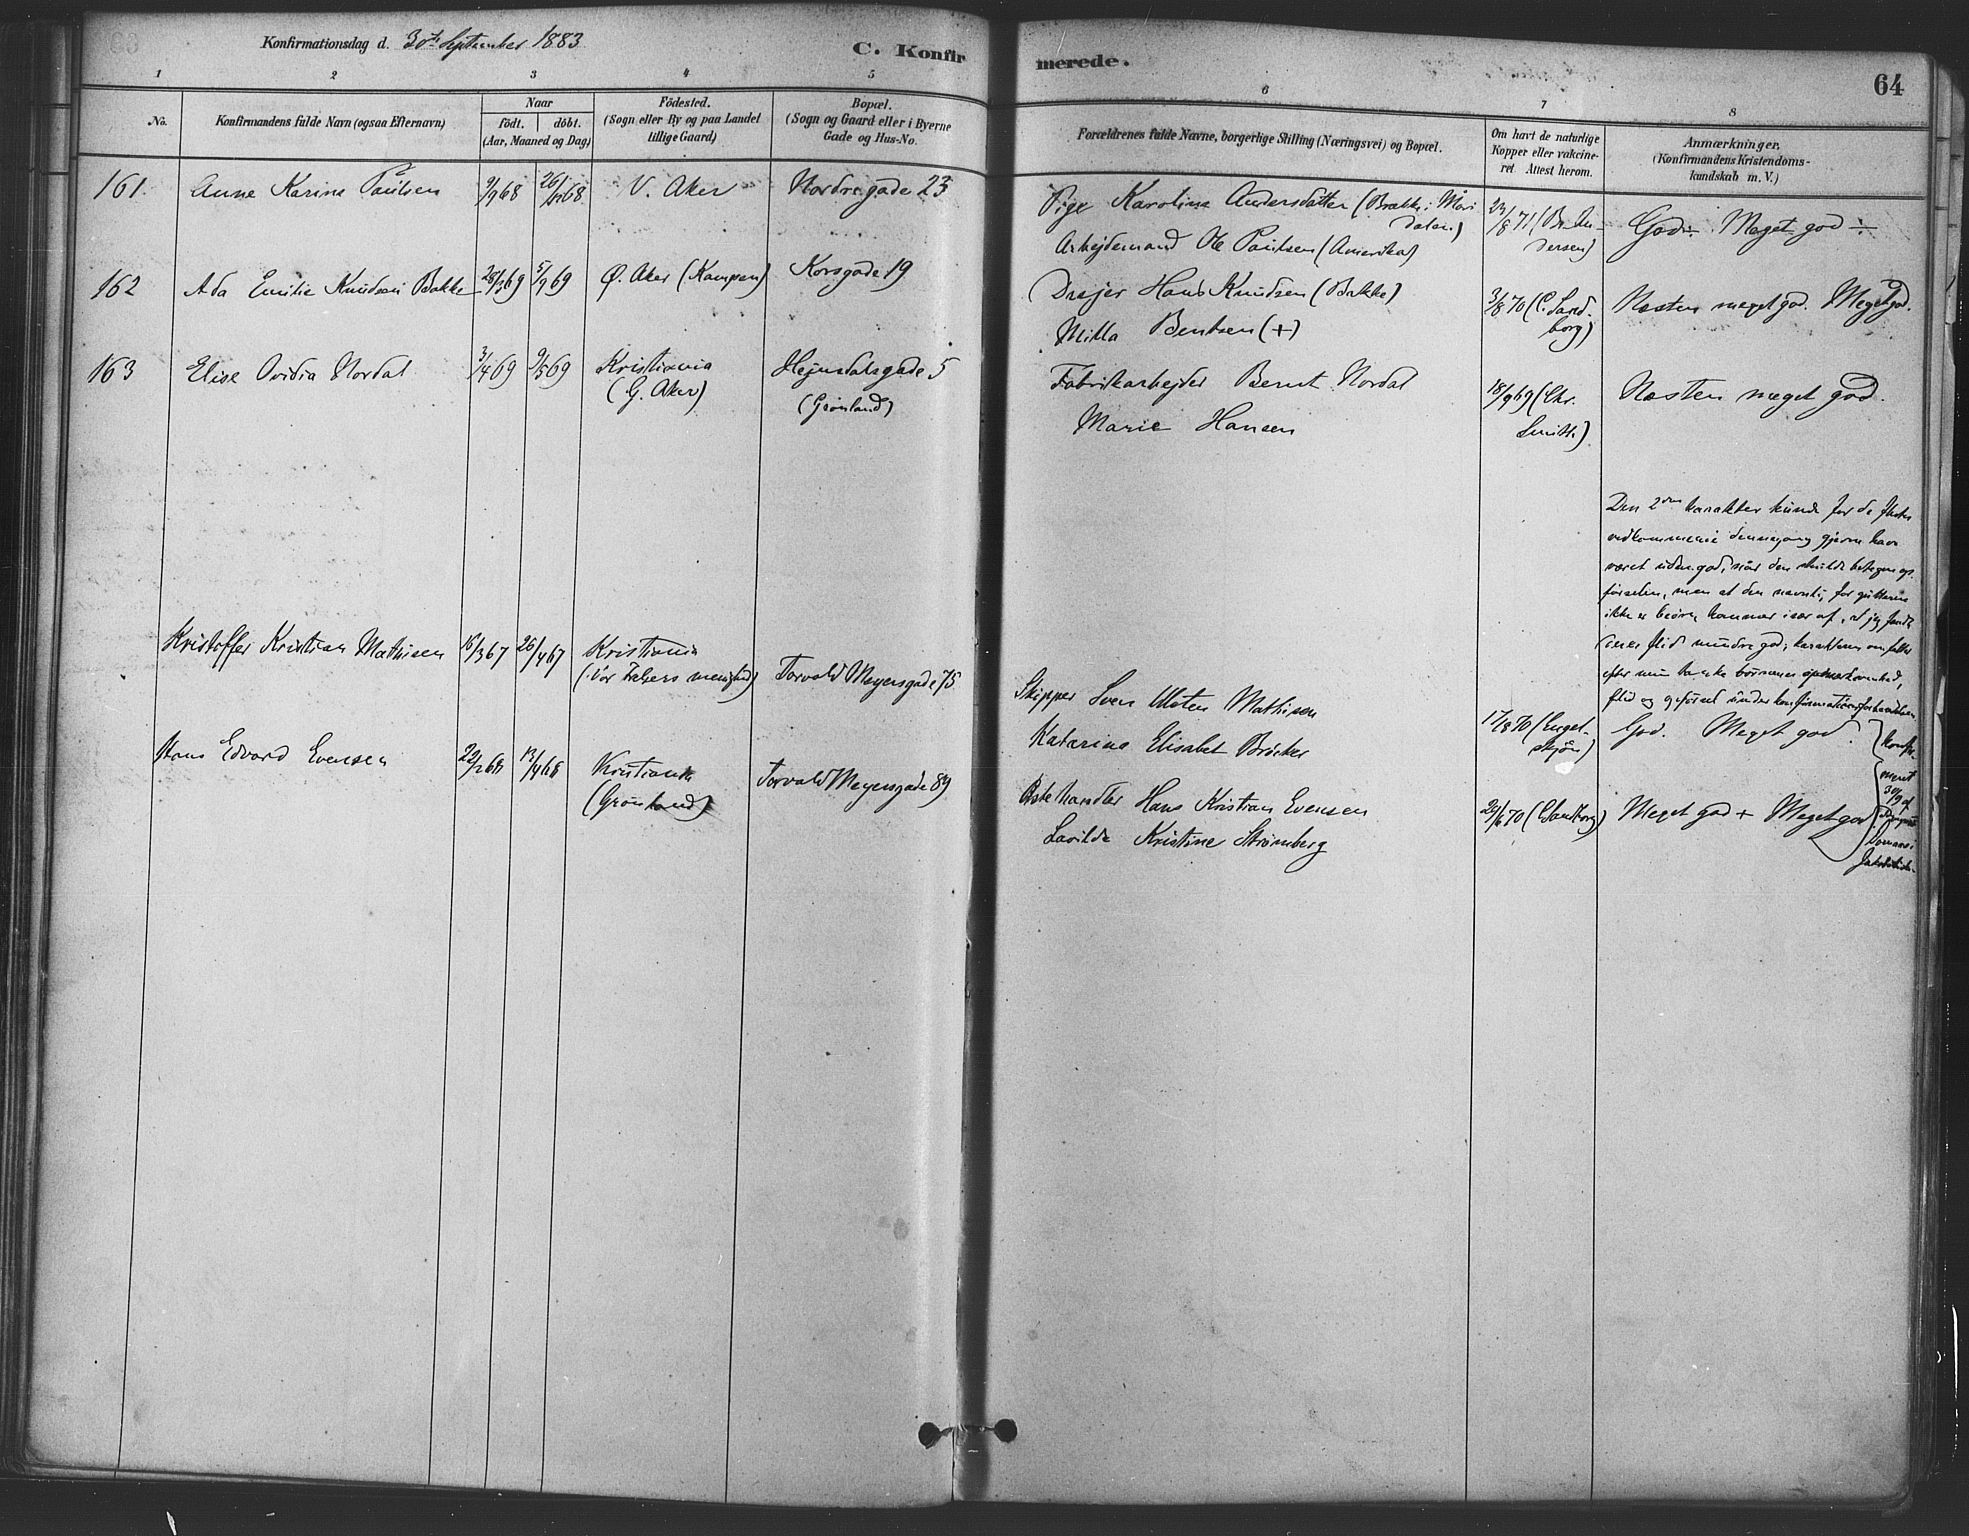 Konfirmationsdag d. 30te September 1883
C. Konfirmerede.
64
1 2 3 4 5 6 7 8
No.
Konfirmandens fulde Navn (ogsaa Efternavn)
Naar
født. døbt.
(Aar, Maaned og Dag)
Födested.
(Sogn eller By og paa Landet
tillige Gaard)
Bopæl.
(Sogn og Gaard eller i Byerne
Gade og Hus-No.
Forældrenes fulde Navne, borgerlige Stilling (Næringsvei) og Bopæl.
Om havt de naturlige
Kopper eller vakcine-
ret Attest herom.
Anmærkninger.
(Konfirmandens Kristendoms-
kundskab m. V.)
161. Anne Karine Paulsen 9/9 68 26/12 68 V. Aker Nordregade 23
Pige Karoline Andersdatter (Brække i Mari
dalen)
Arbejdemand Ole Paulsen (Amerika)
23/8 71 (Br. An-
dersen)
God÷. Meget god ÷
162 Ada Emilie Knudsen Bakke 28/3 69 5/9 69 Ø. Aker (Kampen) Korsgade 19
Drejer Hans Knudsen (Bakke)
Milla Bentsen (+)
3/8 70 (C. Sand-
borg)
Næsten meget god. Meget god.
163 Elise Ovidia Nordal 3/4 69 9/5 69 Kristiania
(G. Aker)
Hejmdalsgade 5
(Grønland)
Fabrikarbejder Bernt Nordal
Marie Hansen
18/9 69 (Chr.
Smith)
Næsten meget god.
Den 2den karakter kunde for de fleste
vedkommende dennegang gjerne have
været uden god, når den skulde betegne op-
førselen, men at den navnlig for gutterne
ikke er bedre, kommer især af, at jeg fandt
deres flid mindre god; karakteren omfatter
efter min tanke børnenes opmærksomhed,
flid og opførsel under konfirmationsforberedelsen
Kristoffer Kristian Mathisen 16/3 67 26/4 67 Kristiania
(Vor Frelsers menighed)
Torvald Meyersgade 75
Skipper Sven Ulsten Mathisen
Katarina Elisabet Bröcker
17/8 70 (Engel-
skjøn)
God. Meget god.
Hans Edvard Evensen 22/2 68 13/4 68 Kristiania
(Grønland)
Torvald Meyersgade 89
Hans Kristian Evensen
Lavilde Kristine Strømberg
29/6 70 (C. Sandborg)
Meget god + Meget god
Konfir-
meret
30/9 af